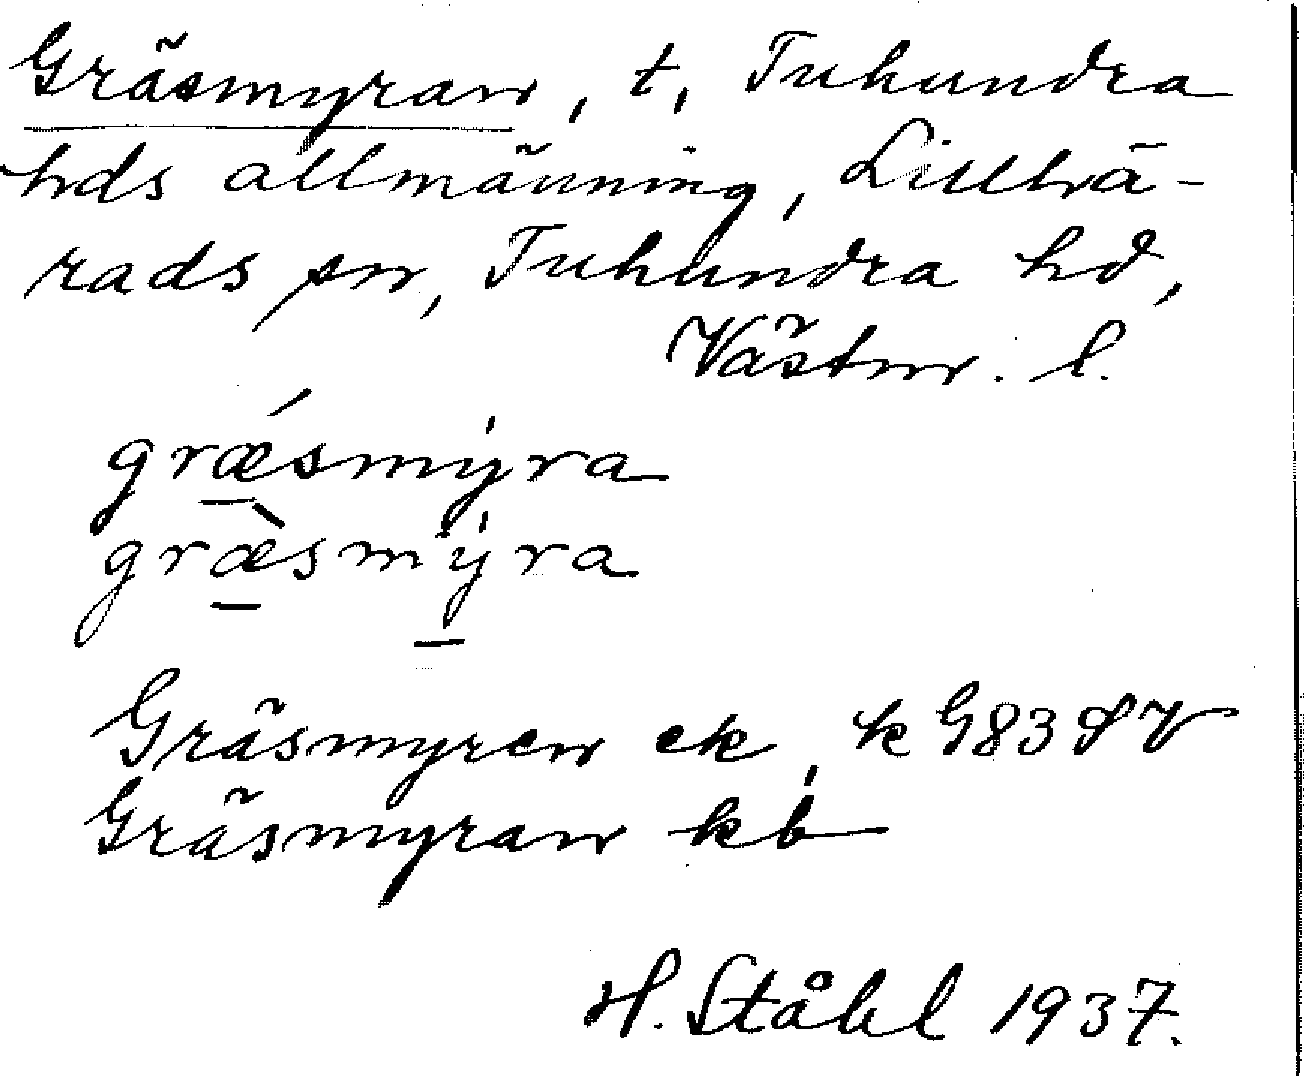 Gräsmyran, t, Tuhundra
hds allmänning, Lillhä-
rads sn, Tuhundra hd,
Västm. l.
grǽsmy̍ra
græ̀smy̍ra
Gräsmyren ek, k G83SV
Gräsmyran kb
H. Ståhl 1937.